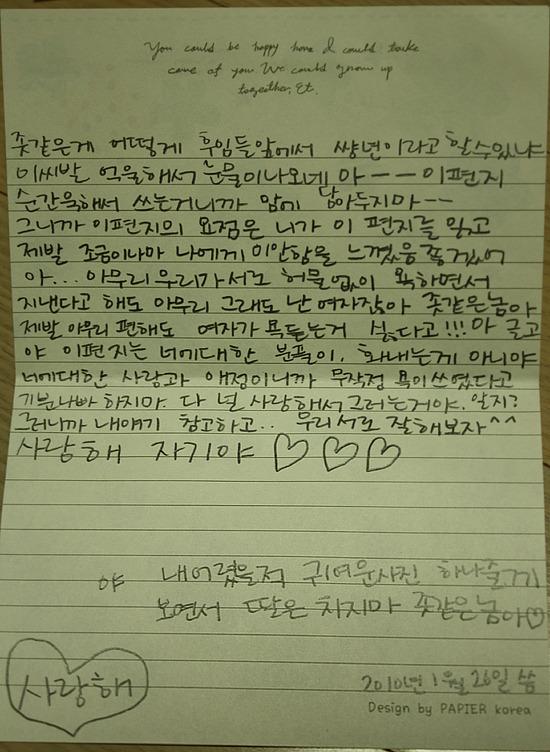 You could be happy here I could take
care of you We could grow up
together, Et.
좃같은게 어떻게 후임들앞에서 썅년이라고 할수있냐
이씨발 억울해서 눈물이나오네 아ーー이편지
순간욱해서 쓰는거니까 맘에 담아두지마--
그니까 이편지의 요점은 니가 이 편지를 읽고
제발 조금이나마 나에게 미안함을 느꼈음 좋겠어
아... 아무리우리가서로 허물없이 욕하면서
지낸다고 해도 아무리 그래도 난 여자잖아 좃같은놈아
제발 아무리 편해도 여자가 욕듣는거 싫다고!!! 아 글고
야 이편지는 너에대한 분풀이, 화내는게 아니야
너에대한 사랑과 애정이니까 무작정 욕이쓰였다고
기분나빠 하지마. 다 널 사랑해서그러는거야. 알지?
그러니까 내얘기 참고하고.. 우리서로 잘해보자^^
사랑해 자기야 ♡♡♡
야 내어렸을적 귀여운사진 하나줄게
보면서 딸은 치지마 좃같은놈아♡
사랑해
2010년 1월 26일 씀
Design by PAPIER korea